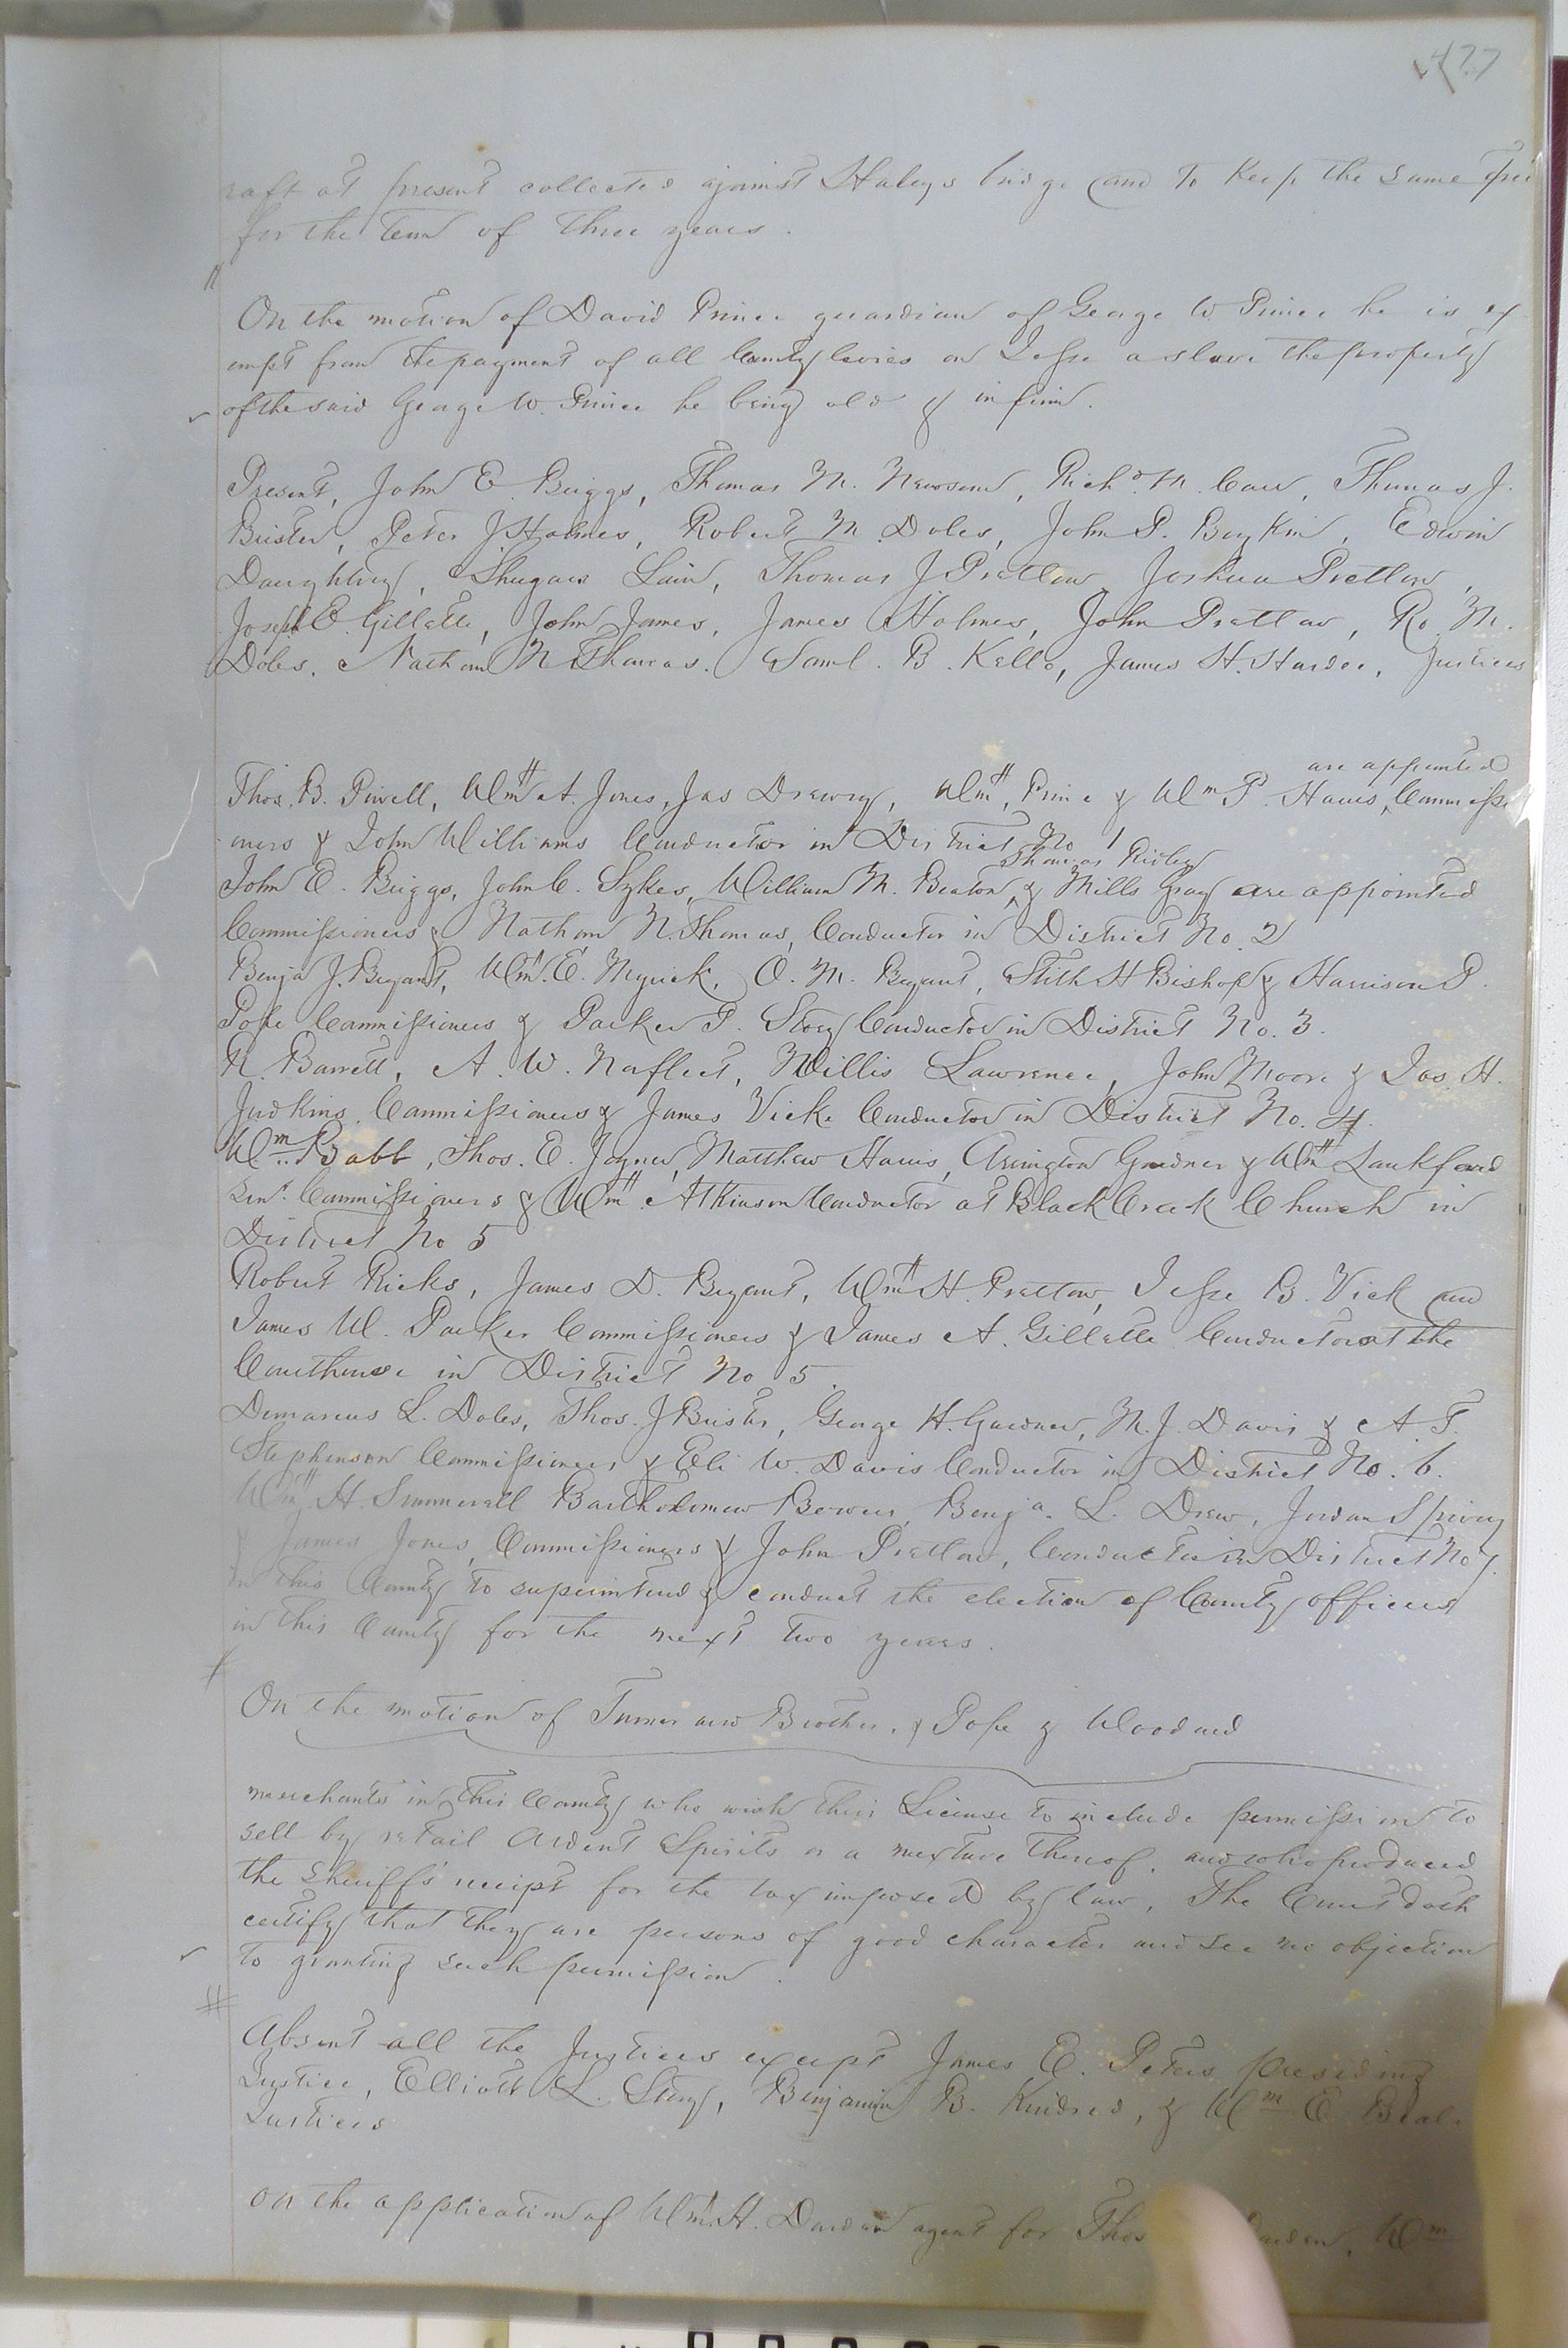 477
raft at present collected against Haleys bridge and to Keep the same free
for the term of three years.
On the motion of David Prince guardian of George W. Prince he is ex
empt from the payment of all County levies on Jesse a slave the property
of the said George W. Prince he being old & infirm.
Present, John E. Briggs, Thomas M. Newsom, Richd. M. Carr, Thomas J.
Brister, Peter J Holmes, Robert M. Doles, John P. Boykin, Edwin
Daughtrey, Shugars Lain, Thomas J Pretlow, Joshua Pretlow,
Joseph E. Gillette, John James, James Holmes, John Pretlow, Ro. M.
Doles, Nathan N. Thomas. Saml. B. Kello, James H. Hardee, Justices
are appointed
Thos. B. Powell, Wm A. Jones, Jas Drewry, Wm, Prince & Wm P. Harris, Commissi
oners & John Williams Conductor in District No 1
Thomas Ridley
John E. Briggs, John C. Sykes, William M. Beaton, & Mills Gray are appointed
Commissioners & Nathan N. Thomas, Conductor in District No. 2
Benja J. Bryant, Wm. E. Myrick, O. M. Bryant, Stith H Bishop & Harrison P.
Pope Commissioners & Parker P. Story Conductor in District No. 3.
N. Barrett, A. W. Norfleet, Willis Lawrence, John Moore & Jas. H.
Judkins Commissioners & James Vick Conductor in District No. 4.
Wm Babb, Thos. E. Joyner, Matthew Harris, Arrington Gardner & Wm Lankford
Senr. Commissioners & Wm. Atkinson Conductor at Black Creek Church in
District No 5
Robert Ricks, James D. Bryant, Wm H. Pretlow, Jesse B. Vick and
James W. Parker Commissioners & James A. Gillette Conductor at the
Courthouse in District No 5.
Demarcus L. Doles, Thos. J Brister, George H. Gardner, M. J. Davis & A. T.
Stephenson Commissioners & Eli W. Davis Conductor in District No. 6.
Wm H. Summerell Bartholomew Bowers, Benja. L. Drew, Jordan Spivey
& James Jones, Commissioners & John Pretlow, Conductor in District No 7.
in this County to superintend & conduct the election of County officers
in this County for the next two years.
On the motion of Turner and Brother, & Pope & Woodard
merchants in this County who wish their License to include permission to
sell by retail Ardent Spirits or a mixture thereof, and who produced
the Sheriff's receipt for the tax imposed by law, The Court doth
certify that they are persons of good character and see no objection
to granting such permission.
Absent all the Justices except James E. Peters presiding
Justice, Elliott L. Story, Benjamin B. Kindred, & Wm E. Beal.
Justices
On the application of Wm. H. Darden agent for Thos Darden, Wm